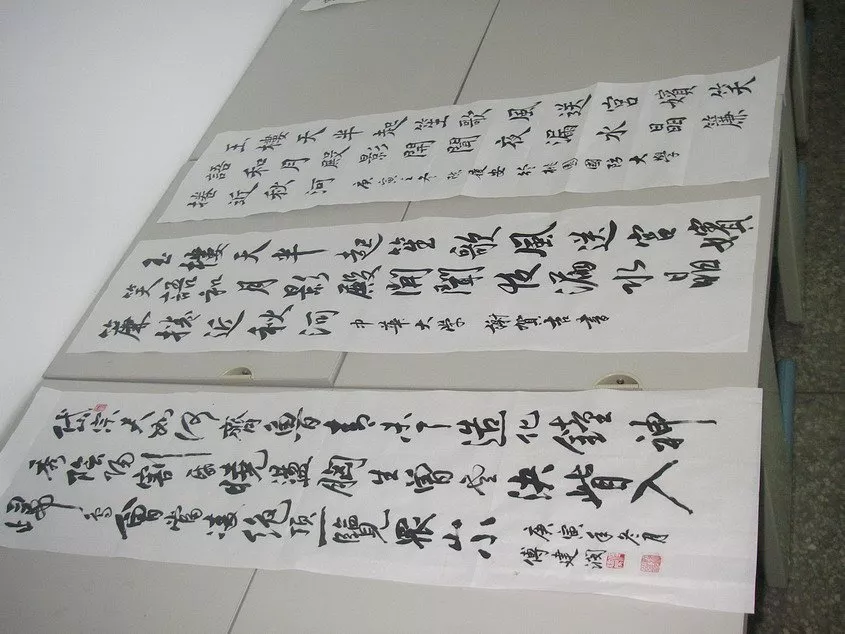 玉樓天半起笙歌風送宮嬪笑
語和月殿影開聞夜漏水晶簾
捲近秋河 庚寅之冬 於桃園國防大學
玉樓天半起笙歌風送宮嬪
笑語和月影殿開聞夜漏水晶
簾捲近秋河 中華大學 謝賀吉書
岱宗夫如何齊魯青未了造化鍾神
秀陰陽割昏曉盪胸生層雲決眥入
歸鳥會當凌絕頂一覽眾山小 庚寅年冬月
傅建潤